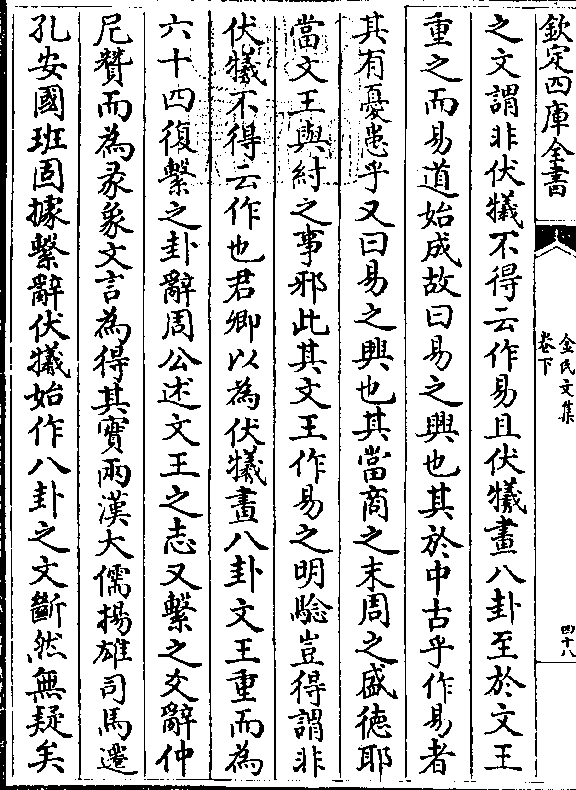 欽定四庫全書
金氏文集
卷下
四十八
之文謂非伏犧不得云作易且伏犧畫八卦至於文王
重之而易道始成故曰易之興也其於中古乎作易者
其有憂患乎又曰易之興也其當商之末周之盛德耶
當文王與紂之事邪此其文王作易之明驗豈得謂非
伏犧不得云作也君卿以為伏犧畫八卦文王重而為
六十四復繫之卦辭周公述文王之志又繫之爻辭仲
尼贊而為彖象文言為得其實兩漢大儒揚雄司馬遷
孔安國班固據繫辭伏犧始作八卦之文斷然無疑矣